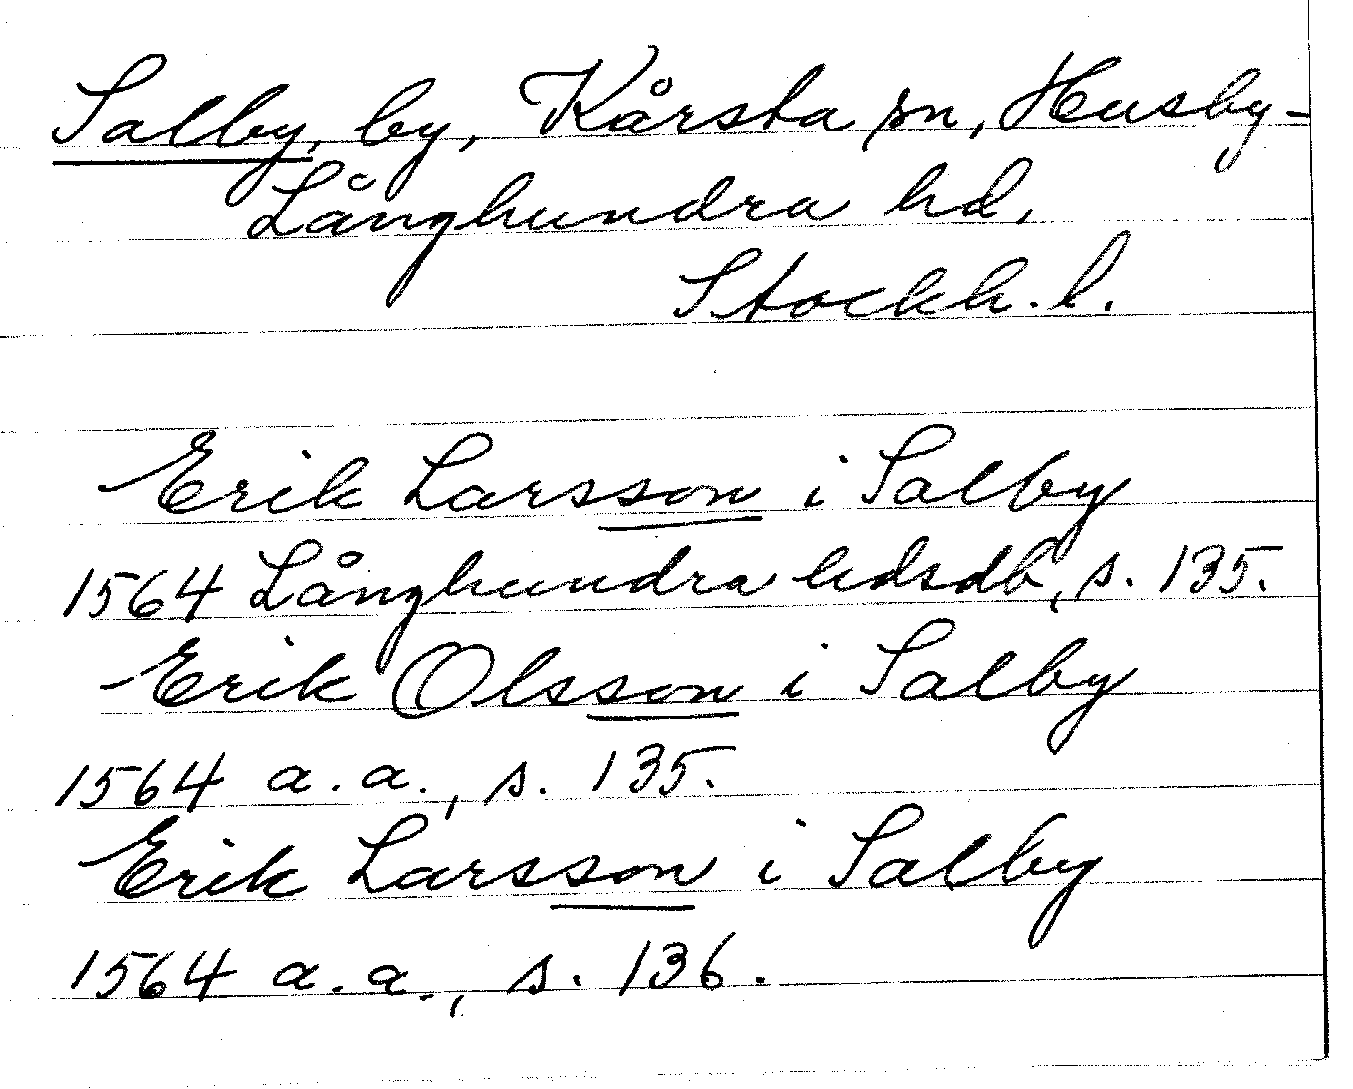 Salby, by, Kårsta sn, Husby-
Långhundra hd,
Stockh. l.
Erik Larsson i Salby
1564 Långhundra hdsdb, s. 135.
Erik Olsson i Salby
1564 a.a., s. 135.
Erik Larsson i Salby
1564 a.a., s. 136.